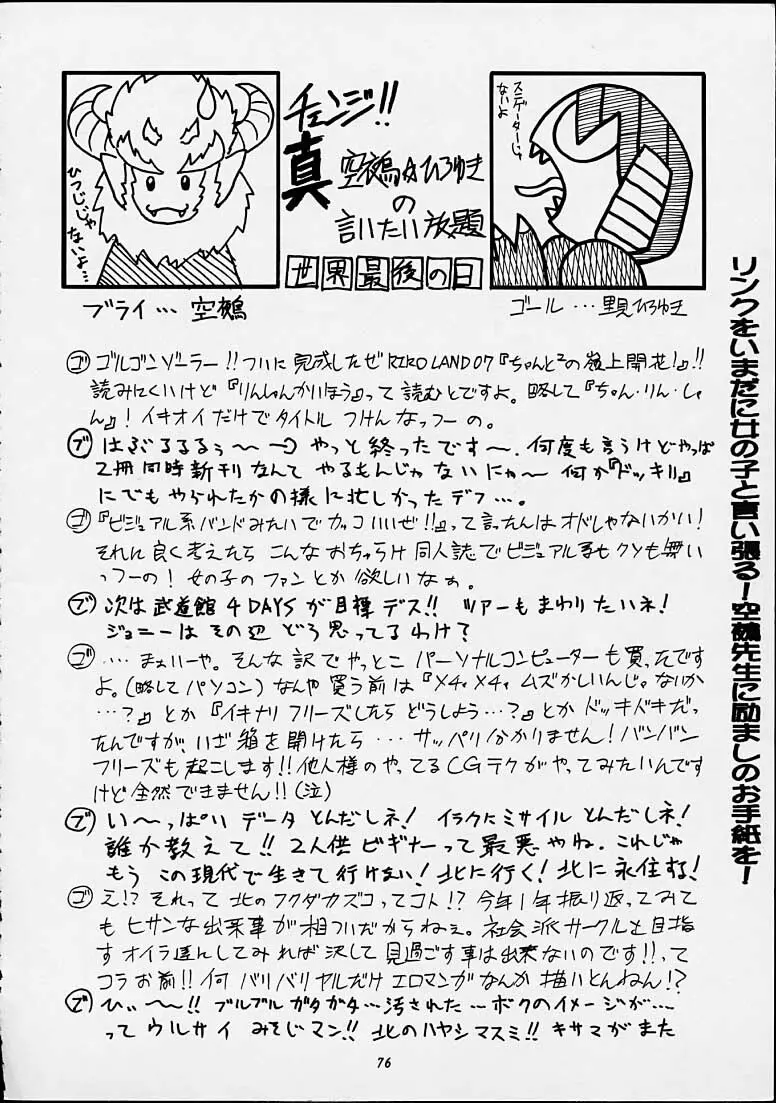 チェンジ!!
真 空鵺☆ひろゆき
の
言いたい放題
世界最後の日
ひつじじゃ
ないよ…
ブライ… 空鵺
ステーターじゃ
ないよ
ゴール …里見ひろゆき
ゴ ゴルゴンゾーラー!!ついに完成したぜRIROLAND07『ちゃんと²の嶺上開花!』!!
読みにくいけど『りんしゃんかいほう』って読むとですよ。略して『ちゃん・りん・しゃ
ん』!イキオイだけでタイトルつけんなっつーの。
ブ はぶるるるぅ〜〜 やっと終ったです〜。何度も言うけどやっぱ
2冊同時新刊なんてやるもんじゃないにゃ〜 何か『ドッキリ』
にでもやられたかの様に忙しかったデフ…。
ゴ 『ビジュアル系バンドみたいでカッコいいぜ!!』って言ったんはオドしゃないかい!
それに良く考えたらこんなおちゃらけ同人誌でビジュアル系もクソも無い
っつーの!女の子のファンとか欲しいなぁ。
ブ 次は武道館4DAYSが目標デス!! ツアーもまわりたいネ!
ジョニーはその辺どう思ってるわけ?
ゴ …まぁいーや。そんな訳でやっとこパーソナルコンピューターも買ったです
よ。(略してパソコン)なんや買う前は『メチャメチャムズかしいんじゃないか
…?』とか『イキナリフリーズしたらどうしよう…?』とかドッキドキだっ
たんですが、いざ箱を開けたら…サッパリ分かりません!バンバン
フリーズも起こします!!他人様のやってるCGテクがやってみたいんです
けど全然できません!!(泣)
ブ い〜っぱいデータとんだしネ!イラクにミサイルとんだしネ!
誰か教えて!!2人供ビギナーって最悪やね。これじゃ
もうこの現代で生きて行けない!北に行く!北に永住する!
ゴ え!?それって北のフクダカズコってコト!?今年1年振り返ってみて
もヒサンな出来事が相ついだからねぇ。社会派サークルを目指
すオイラ達んしてみれば決して見過ごす事は出来ないのです!!って
コラお前!!何バリバリヤルだけエロマンガなんか描いとんねん!?
ブ ひぃ〜〜!!ブルブルガタガタ…汚された…ボクのイメージが…
ってウルサイみそじマン!!北のハヤシマスミ!!キサマがまた
リンクをいまだに女の子と言い張る!空鵺先生に励ましのお手紙を!
76